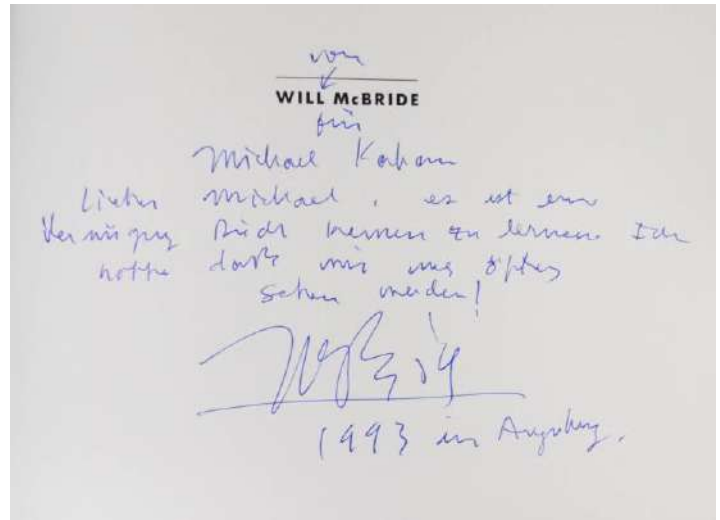 von
WILL McBRIDE
für
Michael
Lieber Michael, es ist ein
Vernügng Dich kennen zu lernen. Ich
hoffe daß wir uns öfters
sehen werden!
1993 in Augsburg.